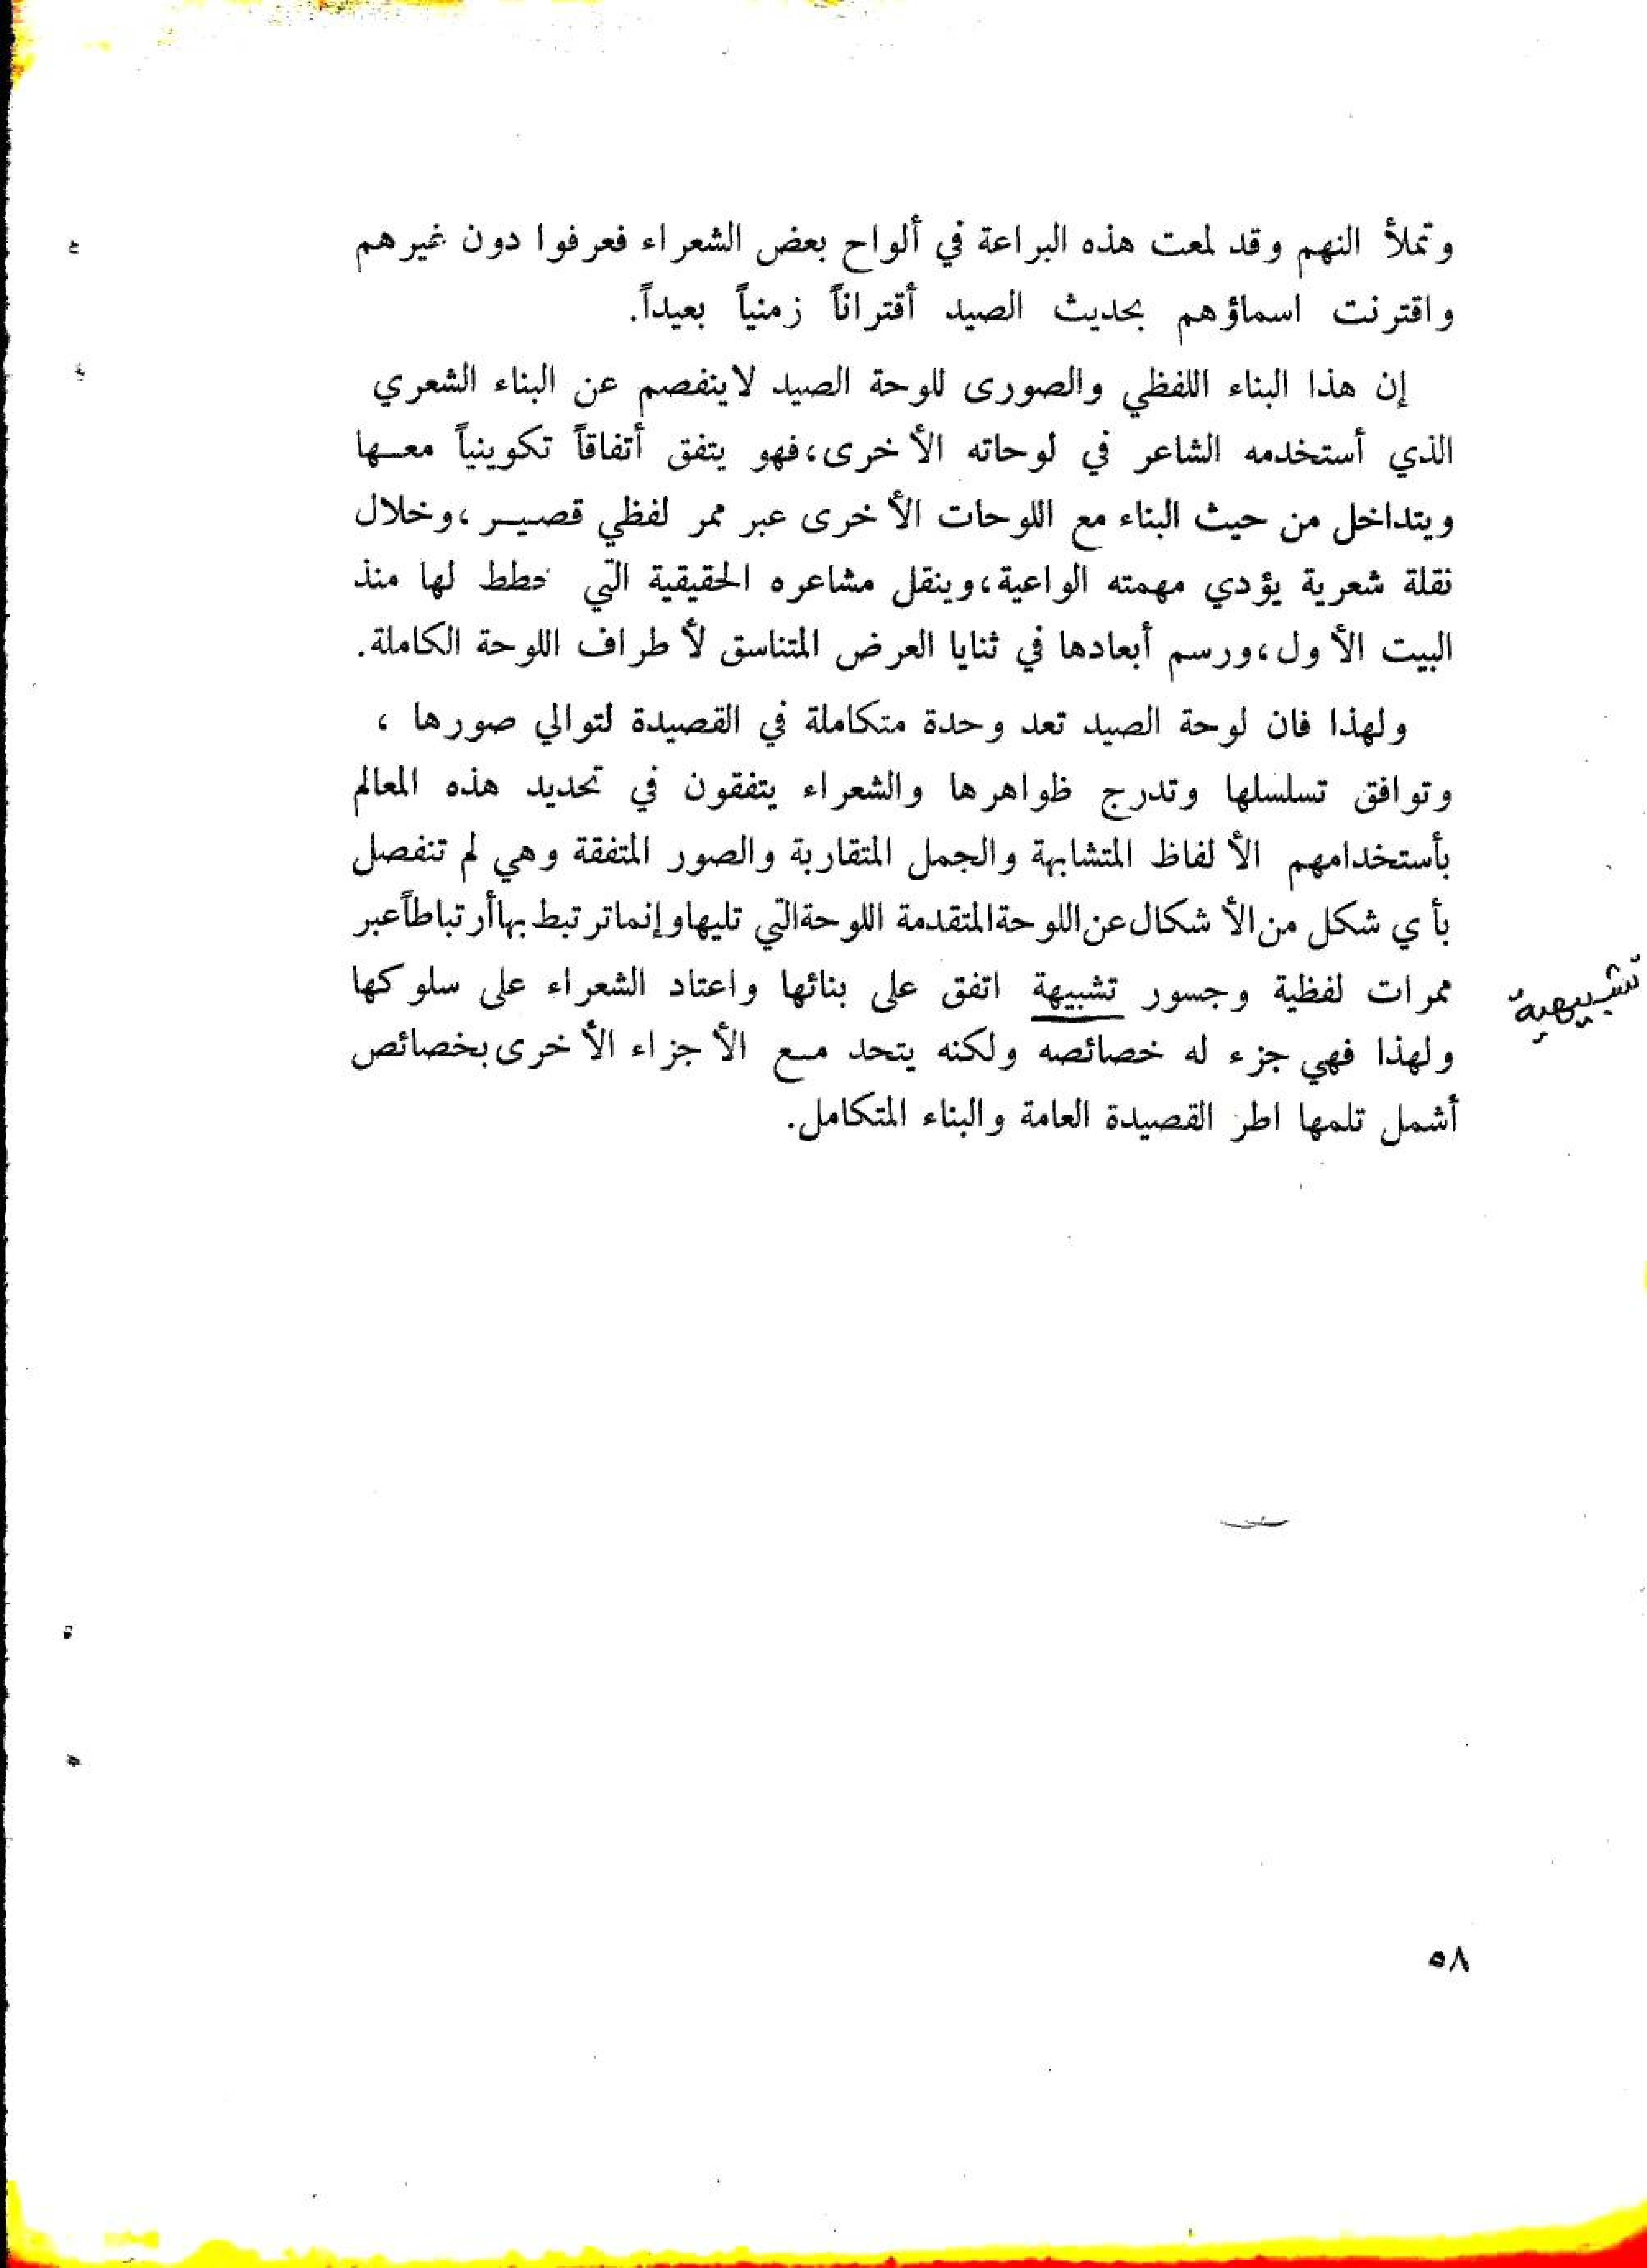 وتملأ النهم وقد لمعت هذه البراعة في ألواح بعض الشعراء فعرفوا دون غيرهم
واقترنت اسماؤهم بحديث الصيد أقتراناً زمنياً بعيداً.
إن هذا البناء اللفظي والصورى للوحة الصيد لاينفصم عن البناء الشعري
الذي أستخدمه الشاعر في لوحاته الأخرى،فهو يتفق أتفاقاً تكوينياً معـها
ويتداخل من حيث البناء مع اللوحات الأخرى عبر ممر لفظي قصيـر،وخلال
نقلة شعرية يؤدي مهمته الواعية،وينقل مشاعره الحقيقية التي خطط لها منذ
البيت الأول،ورسم أبعادها في ثنايا العرض المتناسق لأطراف اللوحة الكاملة.
ولهذا فان لوحة الصيد تعد وحدة متكاملة في القصيدة لتوالي صورها ،
وتوافق تسلسلها وتدرج ظواهرها والشعراء يتفقون في تحديد هذه المعالم
بأستخدامهم الألفاظ المتشابهة والجمل المتقاربة والصور المتفقة وهي لم تنفصل
بأي شكل من الأشكال عن اللوحة المتقدمة اللوحة التي تليها وإنما ترتبط بها أرتباطاً عبر
ممرات لفظية وجسور تشبيهة اتفق على بنائها واعتاد الشعراء على سلوكها
تشبيهية
ولهذا فهي جزء له خصائصه ولكنه يتحد مـع الأجزاء الأخرى بخصائص
أشمل تلمها اطر القصيدة العامة والبناء المتكامل.
٥٨